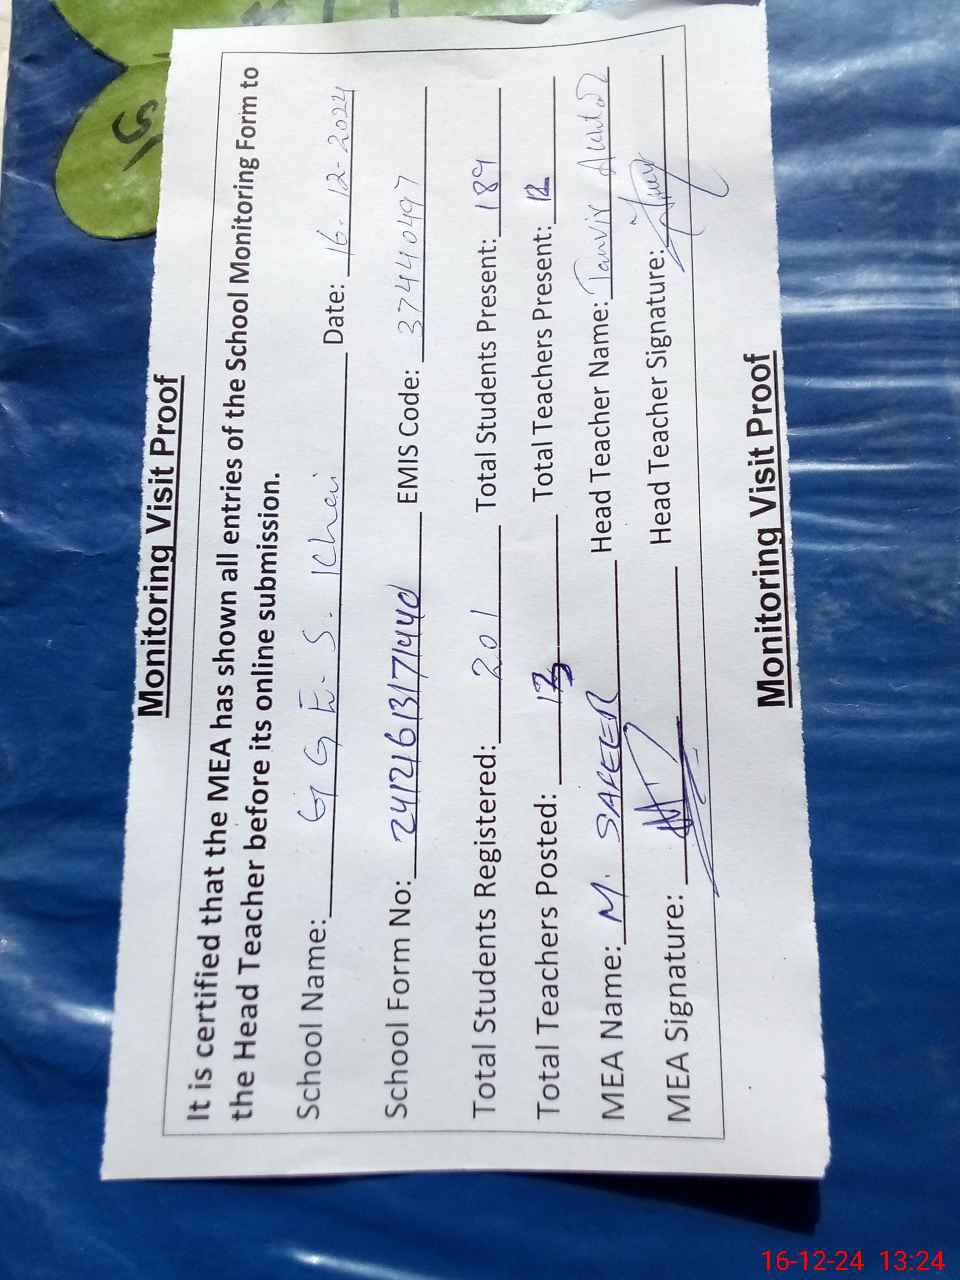 Monitoring Visit Proof
It is certified that the MEA has shown all entries of the School Monitoring Form to
the Head Teacher before its online submission.
School Name: G G E. S. Khai Date: 16-12-2024
School Form No: EMIS Code: 37440497
Total Students Registered: 201 Total Students Present: 189
Total Teachers Posted: Total Teachers Present: 12
MEA Name: M. SAFEER Head Teacher Name: Tanvir Akhtar
MEA Signature: Head Teacher Signature:
Monitoring Visit Proof
16-12-24 13:24